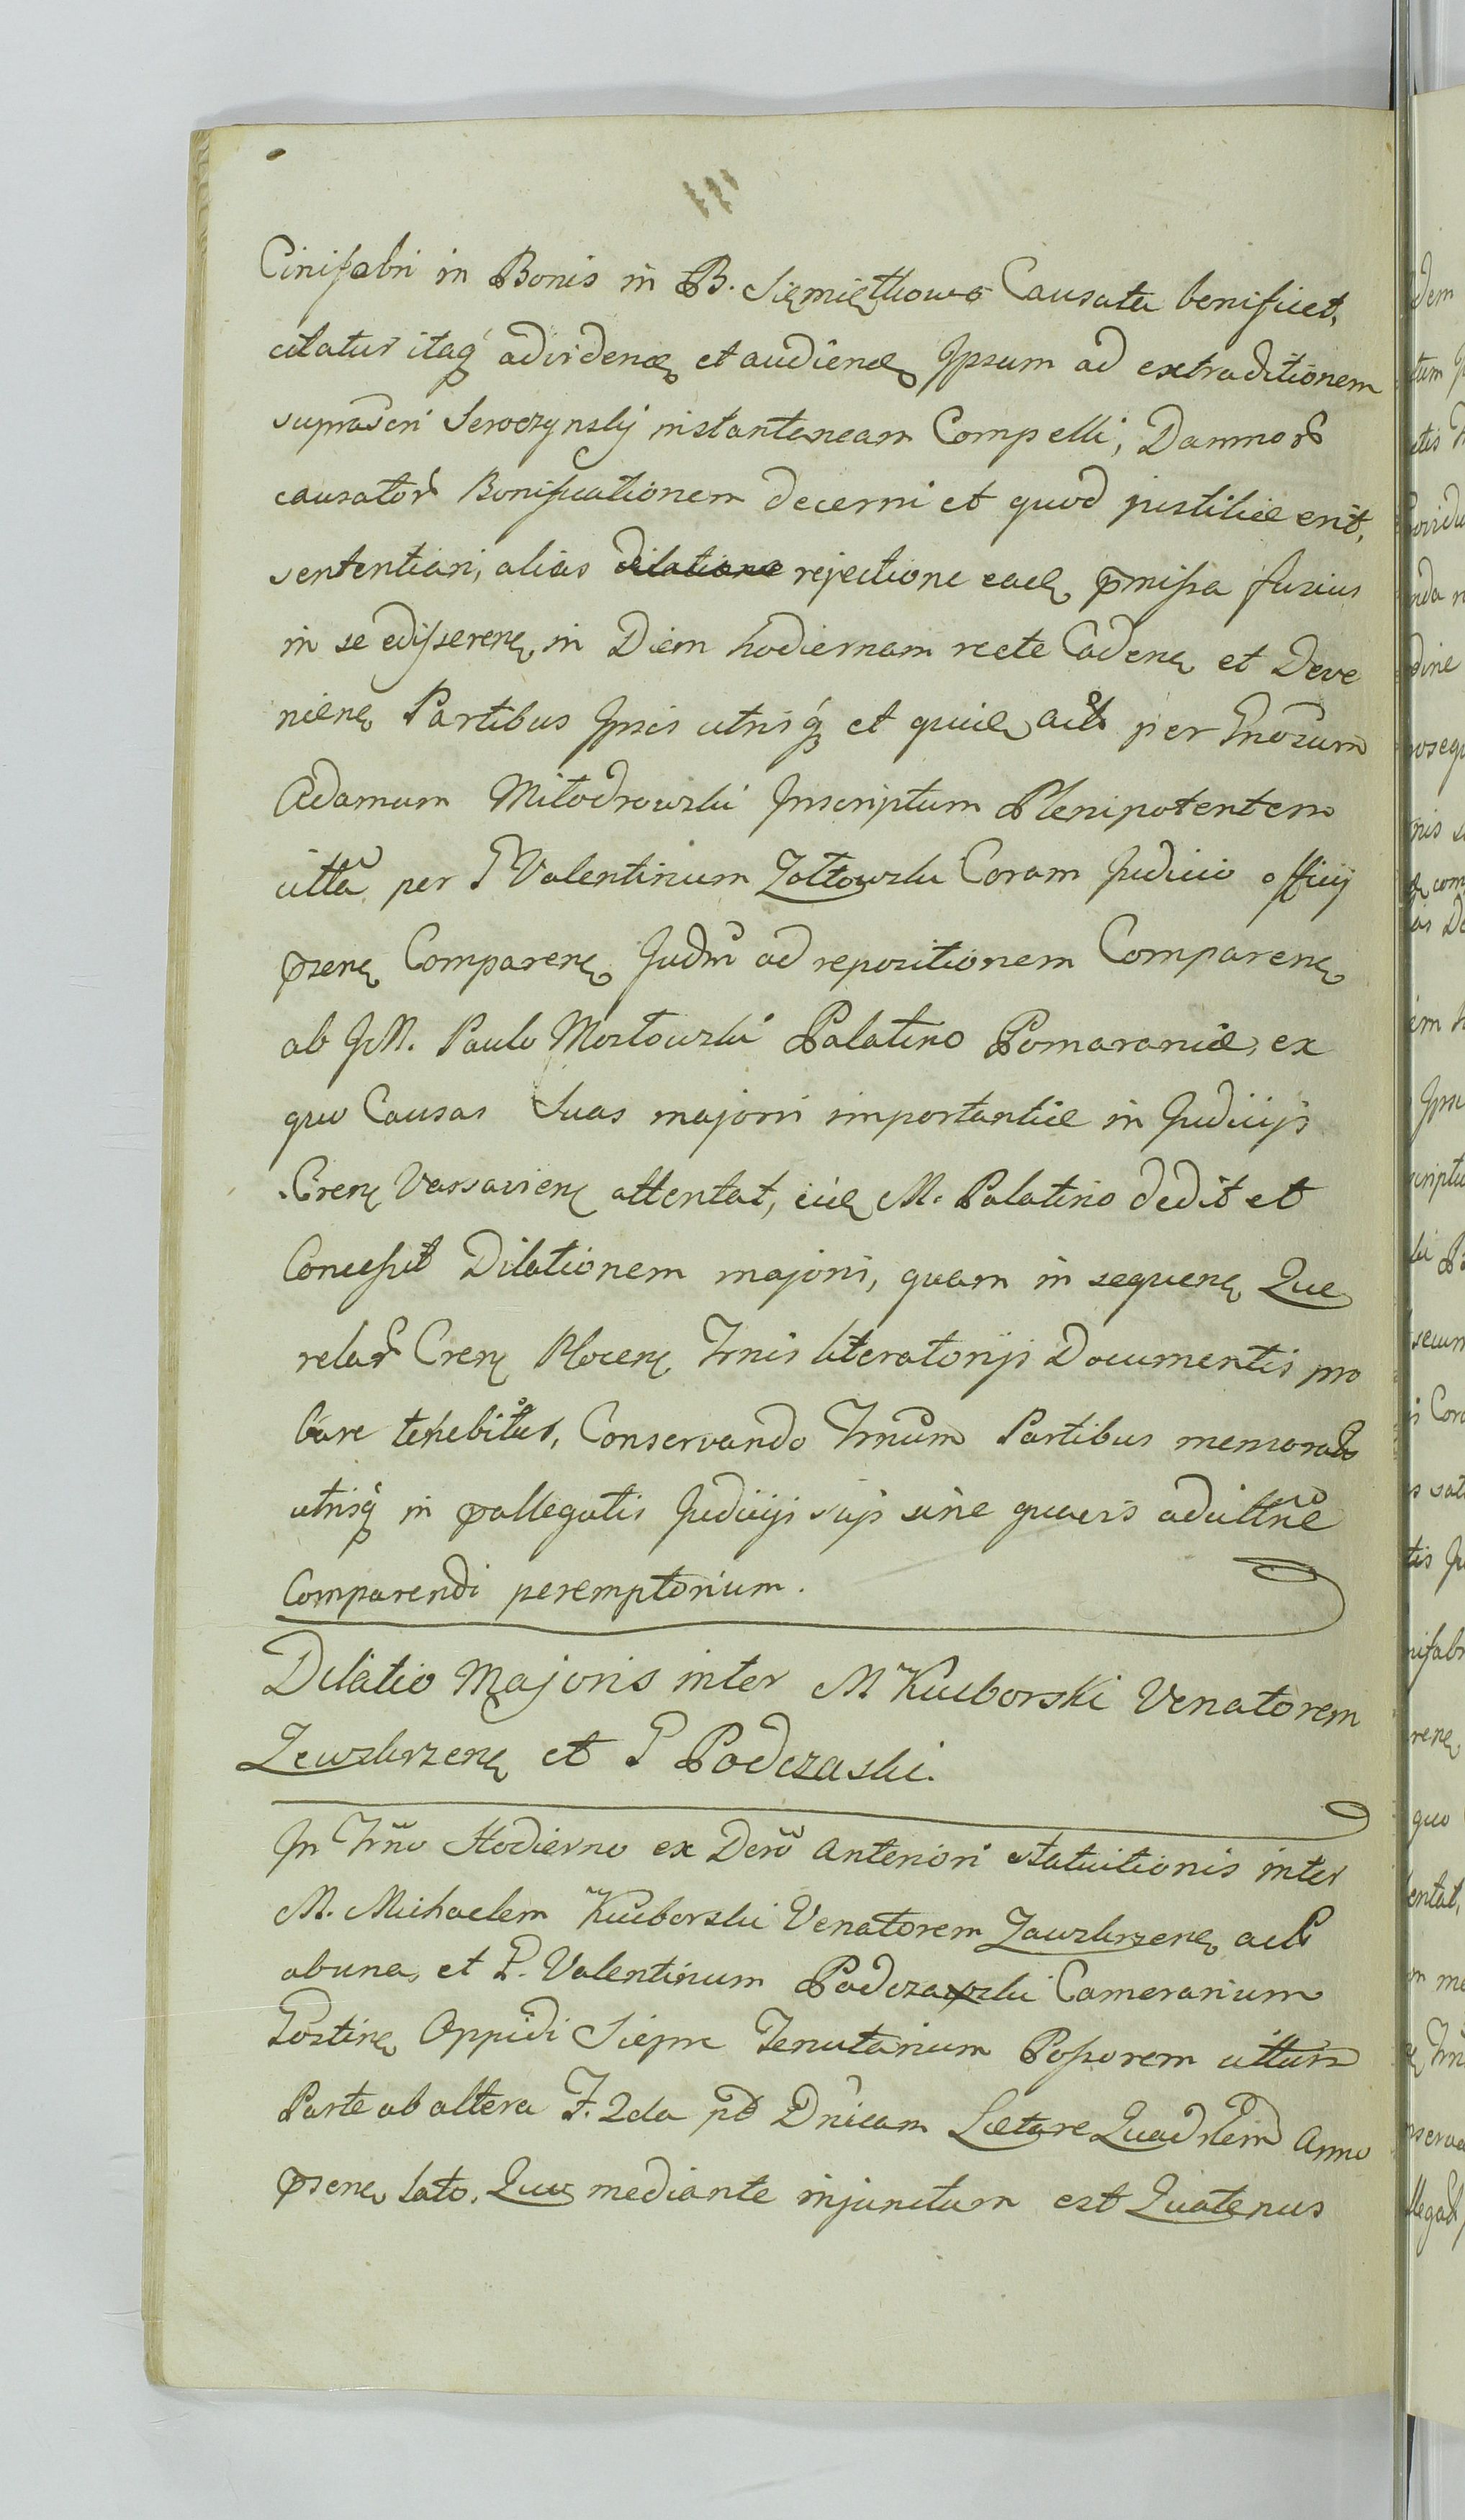 Cinifabri in Bonis in B. Siemiętkowo Causata bonificet,
citatur itaq adviden et audien Ipsum ad extraditionem
suprascri Seroczynskij instantaneam Compelli, Damnor
causator Bonificationem decerni et quod justitiæ erit,
sententiari, alias dilatione rejectione ead pmissa fusius
in se edisseren in Diem hodiernam recte Caden et Deve
nien Partibus Ipsis utrisq et quid act per Gnosum
Adamum Miłodrowski Inscriptum Plenipotentem
citta per G Valentinum Zołtowski Coram Judicio officij
psen Comparen Judm ad repositionem Comparen
ab IM. Paulo Mostowski Palatino Pomaraniæ, ex
quo Causas Suas majoris importantiæ in Judicijs
Cren Varsavien attentat, eid M. Palatino dedit et
Concessit Dilationem majoris, quam in sequen Que
relar Cren Plocen Trnis literatorijs Documentis pro
bare tenebitur, Conservando Trnum Partibus memorat
utrisq in pallegatis Judicijs suis sine quavis adcittne
Comparendi peremptorium.
Dilatio Majoris inter M Kuczborski Venatorem
Zawskrzen et G Podczaski.
In Trno Hodierno ex Decro anteriori statuitionis inter
M. Michaelem Kuczborski Venatorem Zawskrzen act
ab una, et G. Valentinum Podczaski Camerarium
Gostinen Oppidi Sierpc Tenutarium Possorem cittum
Parte ab altera F. 2da pt Dnicam Lætare Quadrlem Anno
psen lato. Quo mediante injunctum est Quatenus